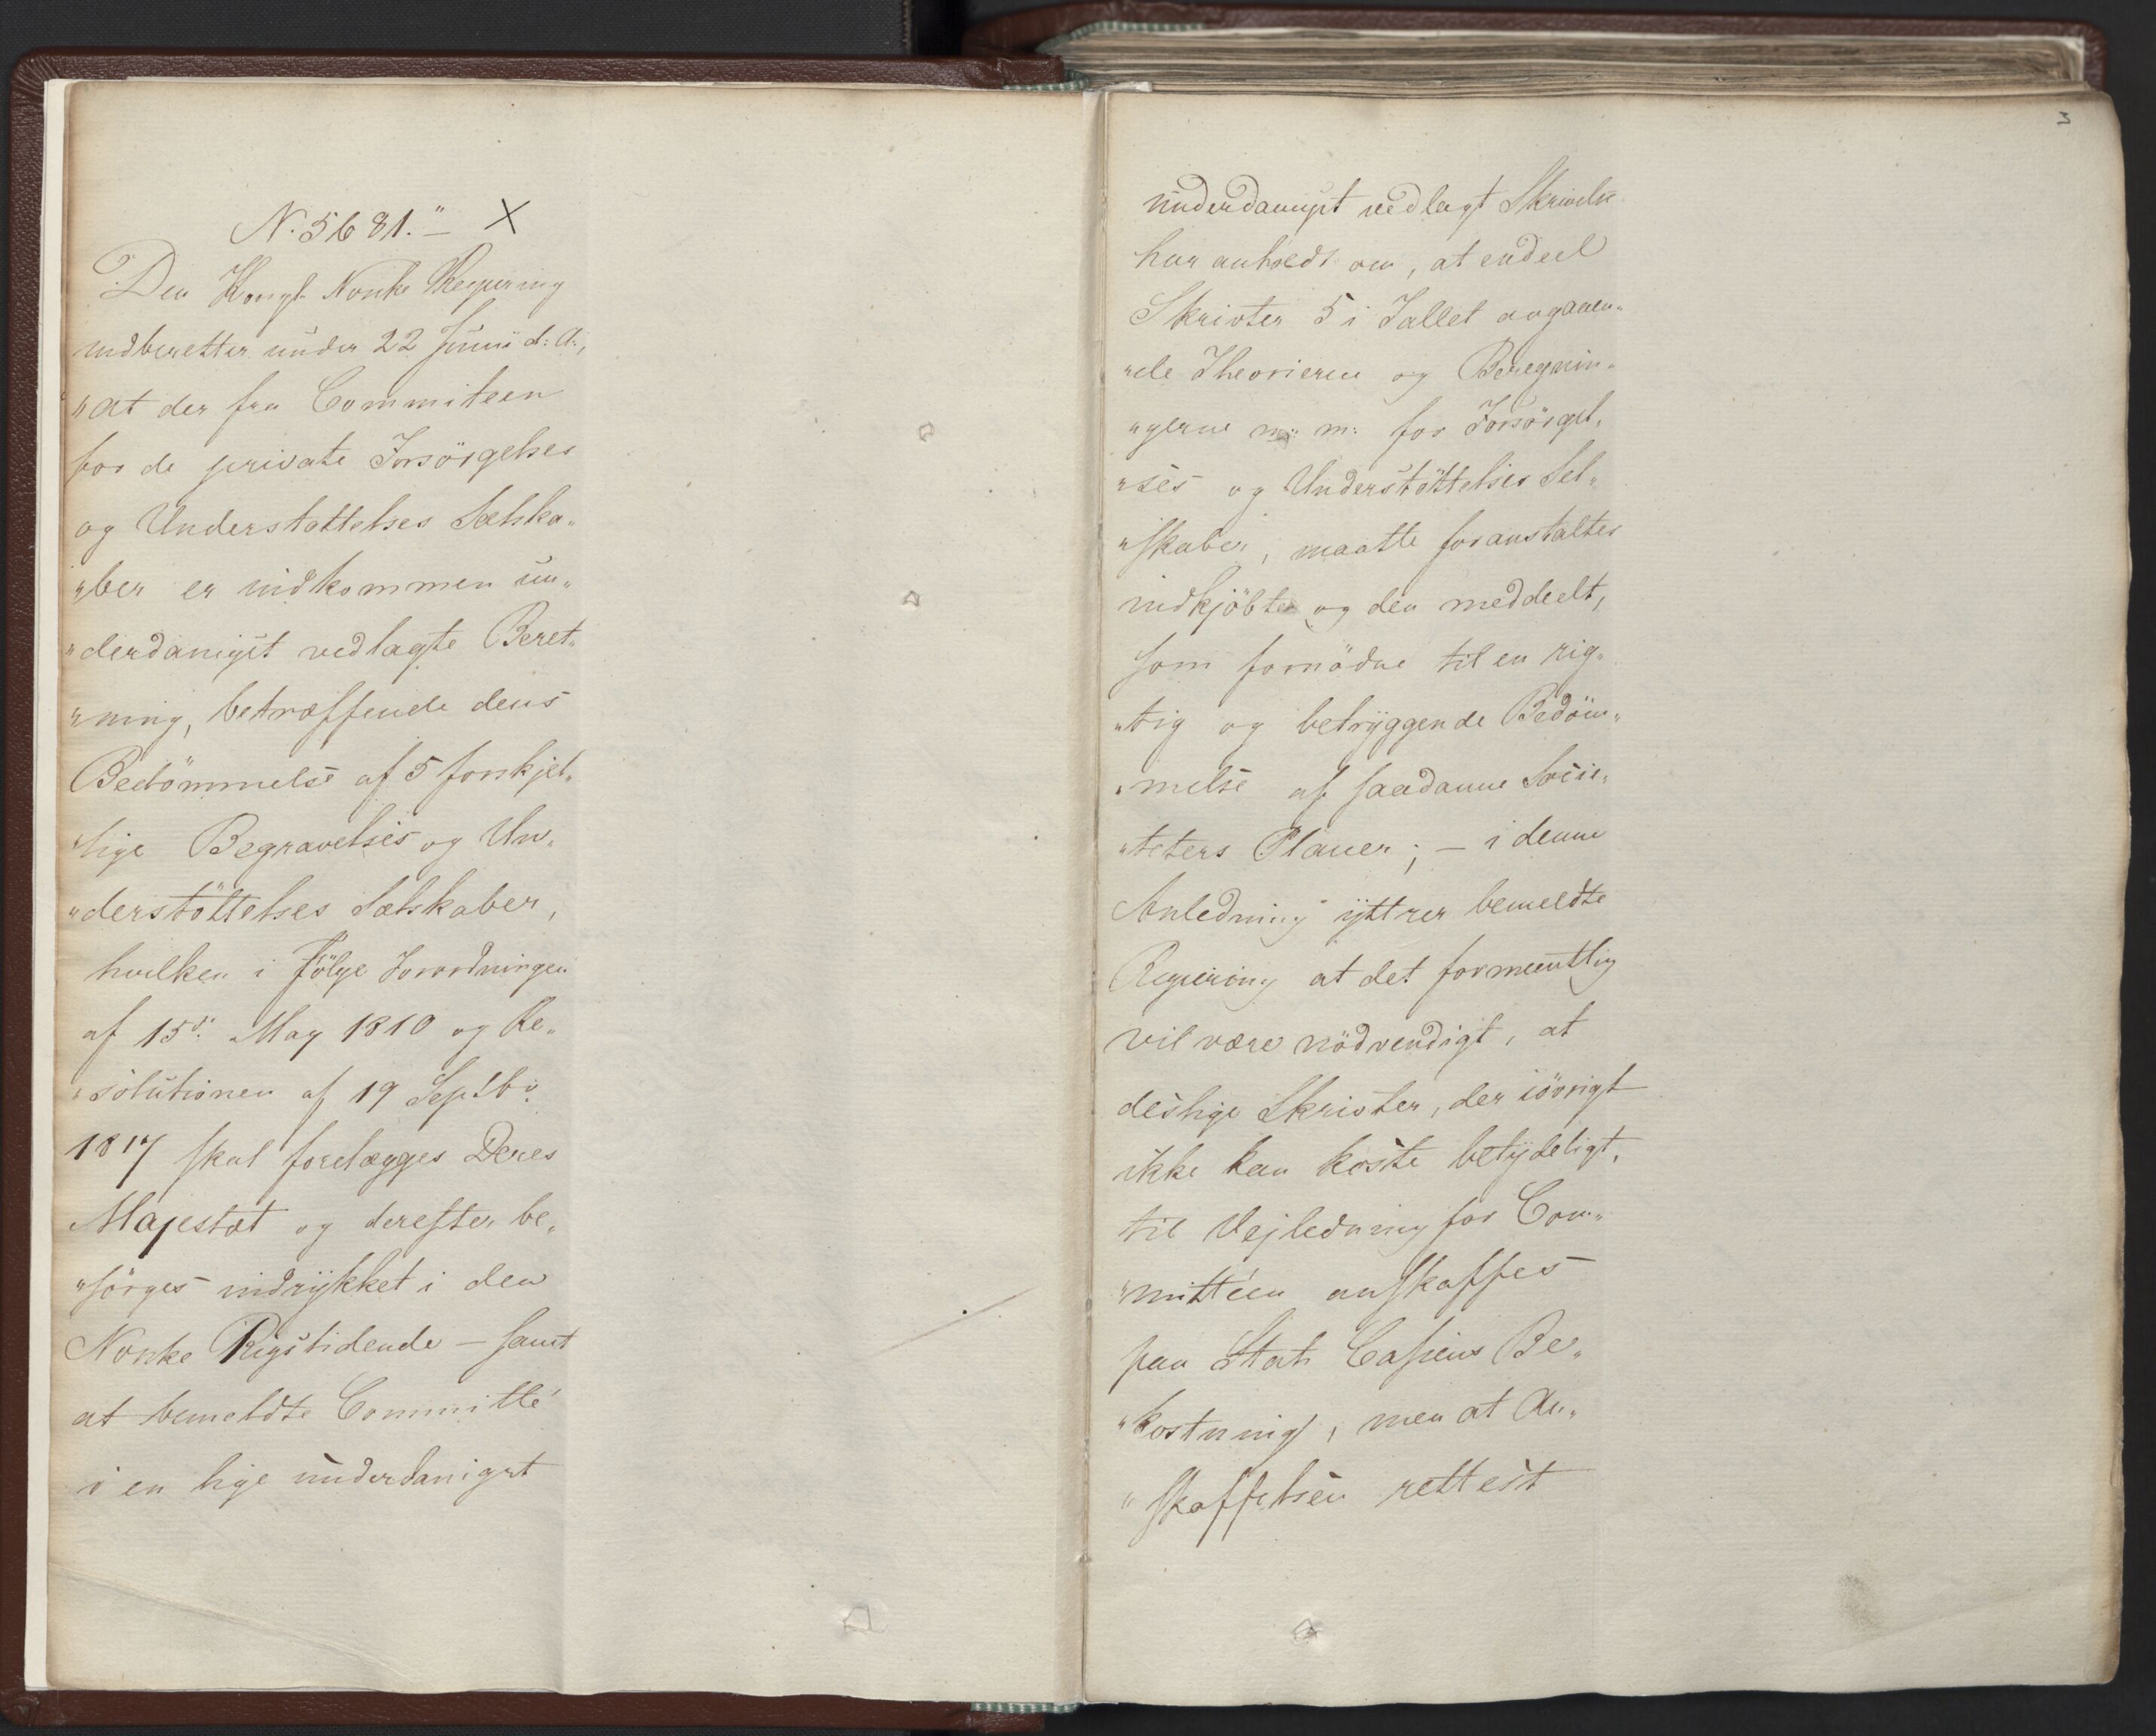 N. 5681." – X
Den Kongl. Norske Regjering
indberetter under 22 Junii d: A:,
"at der fra Commiteen
for de private Forsörgelses
og Understøttelses Selska„
„ber er indkommen un„
„derdanigst vedlagte Beret„
„ning, betræffende dens
Bedömmelse af 5 forskjel„
„lige Begravelses og Un„
„derstöttelses Selskaber,
hvilken i Fölge Forordningen
af 15d: May 1810 og Re„
„solutionen af 19 Septbr:
1817 skal forelægges Deres
Majestæt og derefter be„
„sörges indrykket i den
Norske Rigstidende – samt
at bemeldte Committé
i en lige underdanigst
3
underdanigst vedlagt Skrivelse
har anholdt om, at endeel
Skrivter 5 i Tallet angaaen„
„de Theorierne og Beregnin„
„gerne m: m: for Forsörgel„
„ses og Understöttelses Sel„
„skaber, maatte foranstaltes
indkjöbte og den meddeelt,
som fornödne til en rig„
„tig og betryggende Bedöm„
„melse af saadanne Socie„
„teters Planer; – i denne
Anledning yttrer bemeldte
Regjering at det formeentlig
vil være nödvendigt, at
deslige Skrivter, der iövrigt
ikke kan koste betydeligt,
til Vejledning for Com„
„mittéen anskaffes
paa Stats Cassens Be„
„kostning, men at An„
„skaffelsen rettest